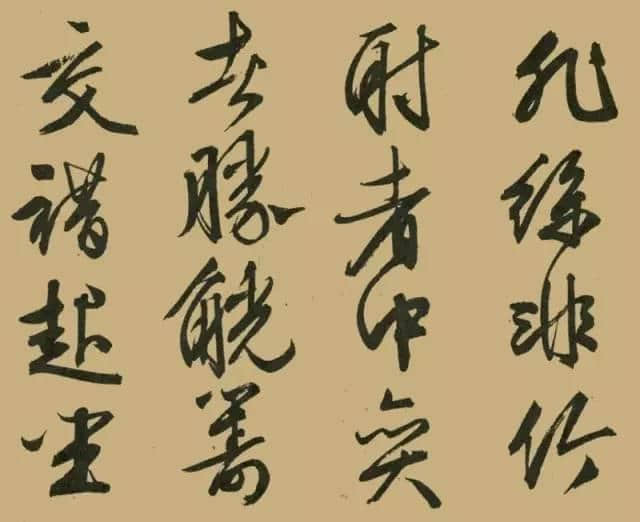 非絲非竹
射者中弈
者勝觥籌
交錯起坐